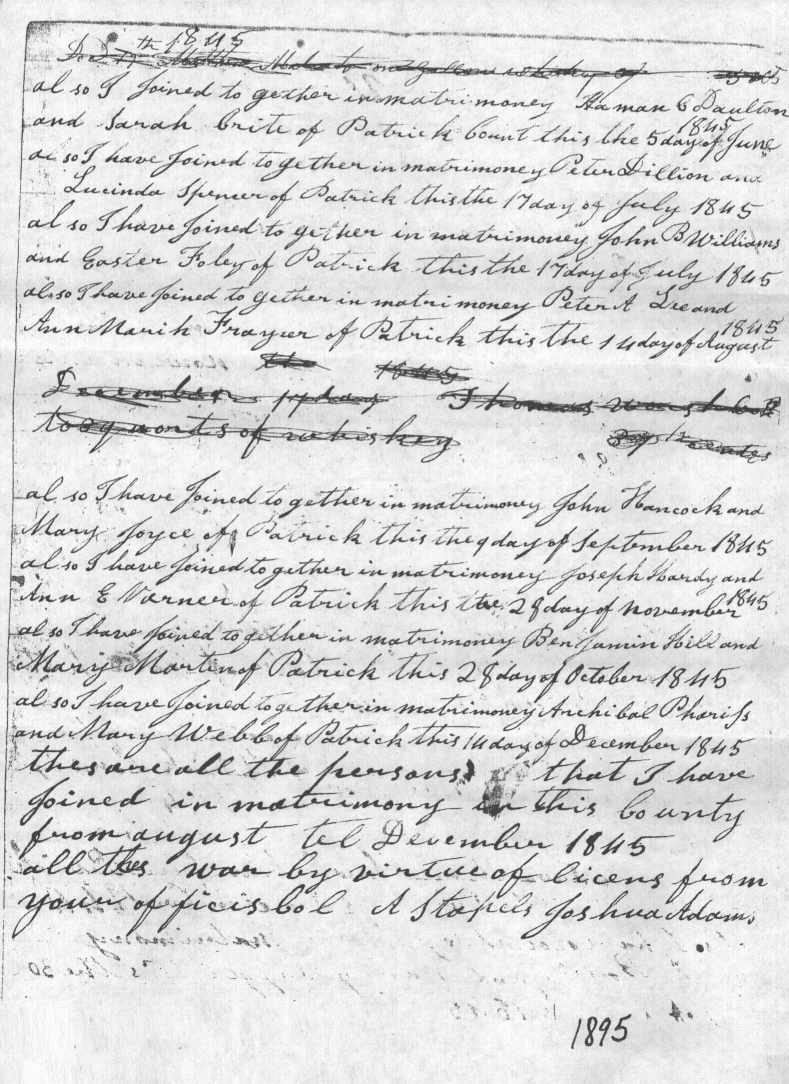 th 1845
Dec 17 one gallon whiskey
al so I Joined to gether in matrimoney Haman C Daulton
and Sarah Crite of Patrick Count this the 5 day of June 1845
al so I have Joined to gether in matrimoney Peter Dillion and
Lucinda Spencer of Patrick this the 17 day of July 1845
al so I have Joined to gether in matrimoney John B Williams
and Easter Foley of Patrick this the 17 day of July 1845
al so I have Joined to gether in matrimoney Peter A Lee and
Ann Marih Frayser of Patrick this the 14 day of August 1845
the 1845
December 17 day Thomas
to qworts of whiskey
al so I have Joined to gether in matrimoney John Hancock and
Mary Joyce of Patrick this the 9 day of September 1845
al so I have Joined to gether in matrimoney Joseph Hardy and
Ann E Varner of Patrick this the 28 day of november 1845
al so I have Joined to gether in matrimoney Benjamin Hill and
Mary Martin of Patrick this 28 day of October 1845
al so I have Joined to gether in matrimoney Archibal Phariss
and Mary Webb of Patrick this 14 day of December 1845
thes are all the persons that I have
Joined in matrimony in this County
from august tel December 1845
all thes war by virtue of licens from
your offic is Col A Staples Joshua Adams
1895